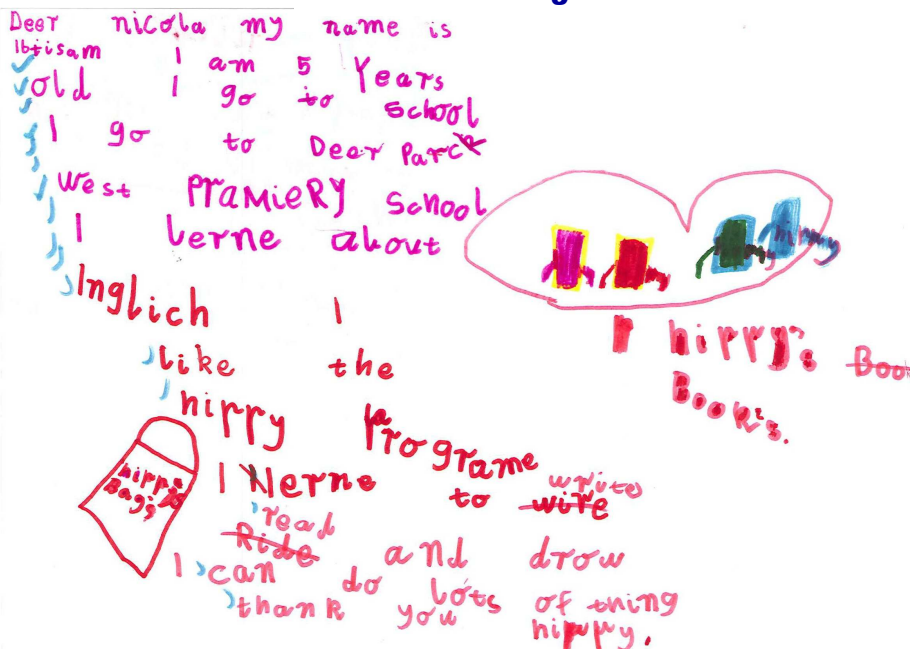 Deer nicola my name is
Ibtisam I am 5 Years
old I go to school
I go to Deer Parck
West PRaMieRY school
I lerne about
Inglich I
like the
hippy Programe
I lerne to wire write
Ride read and drow
I can do lots of thing
thank you hippy.
hippy's
Bag's
hippy
hippy's Boo
Book's.